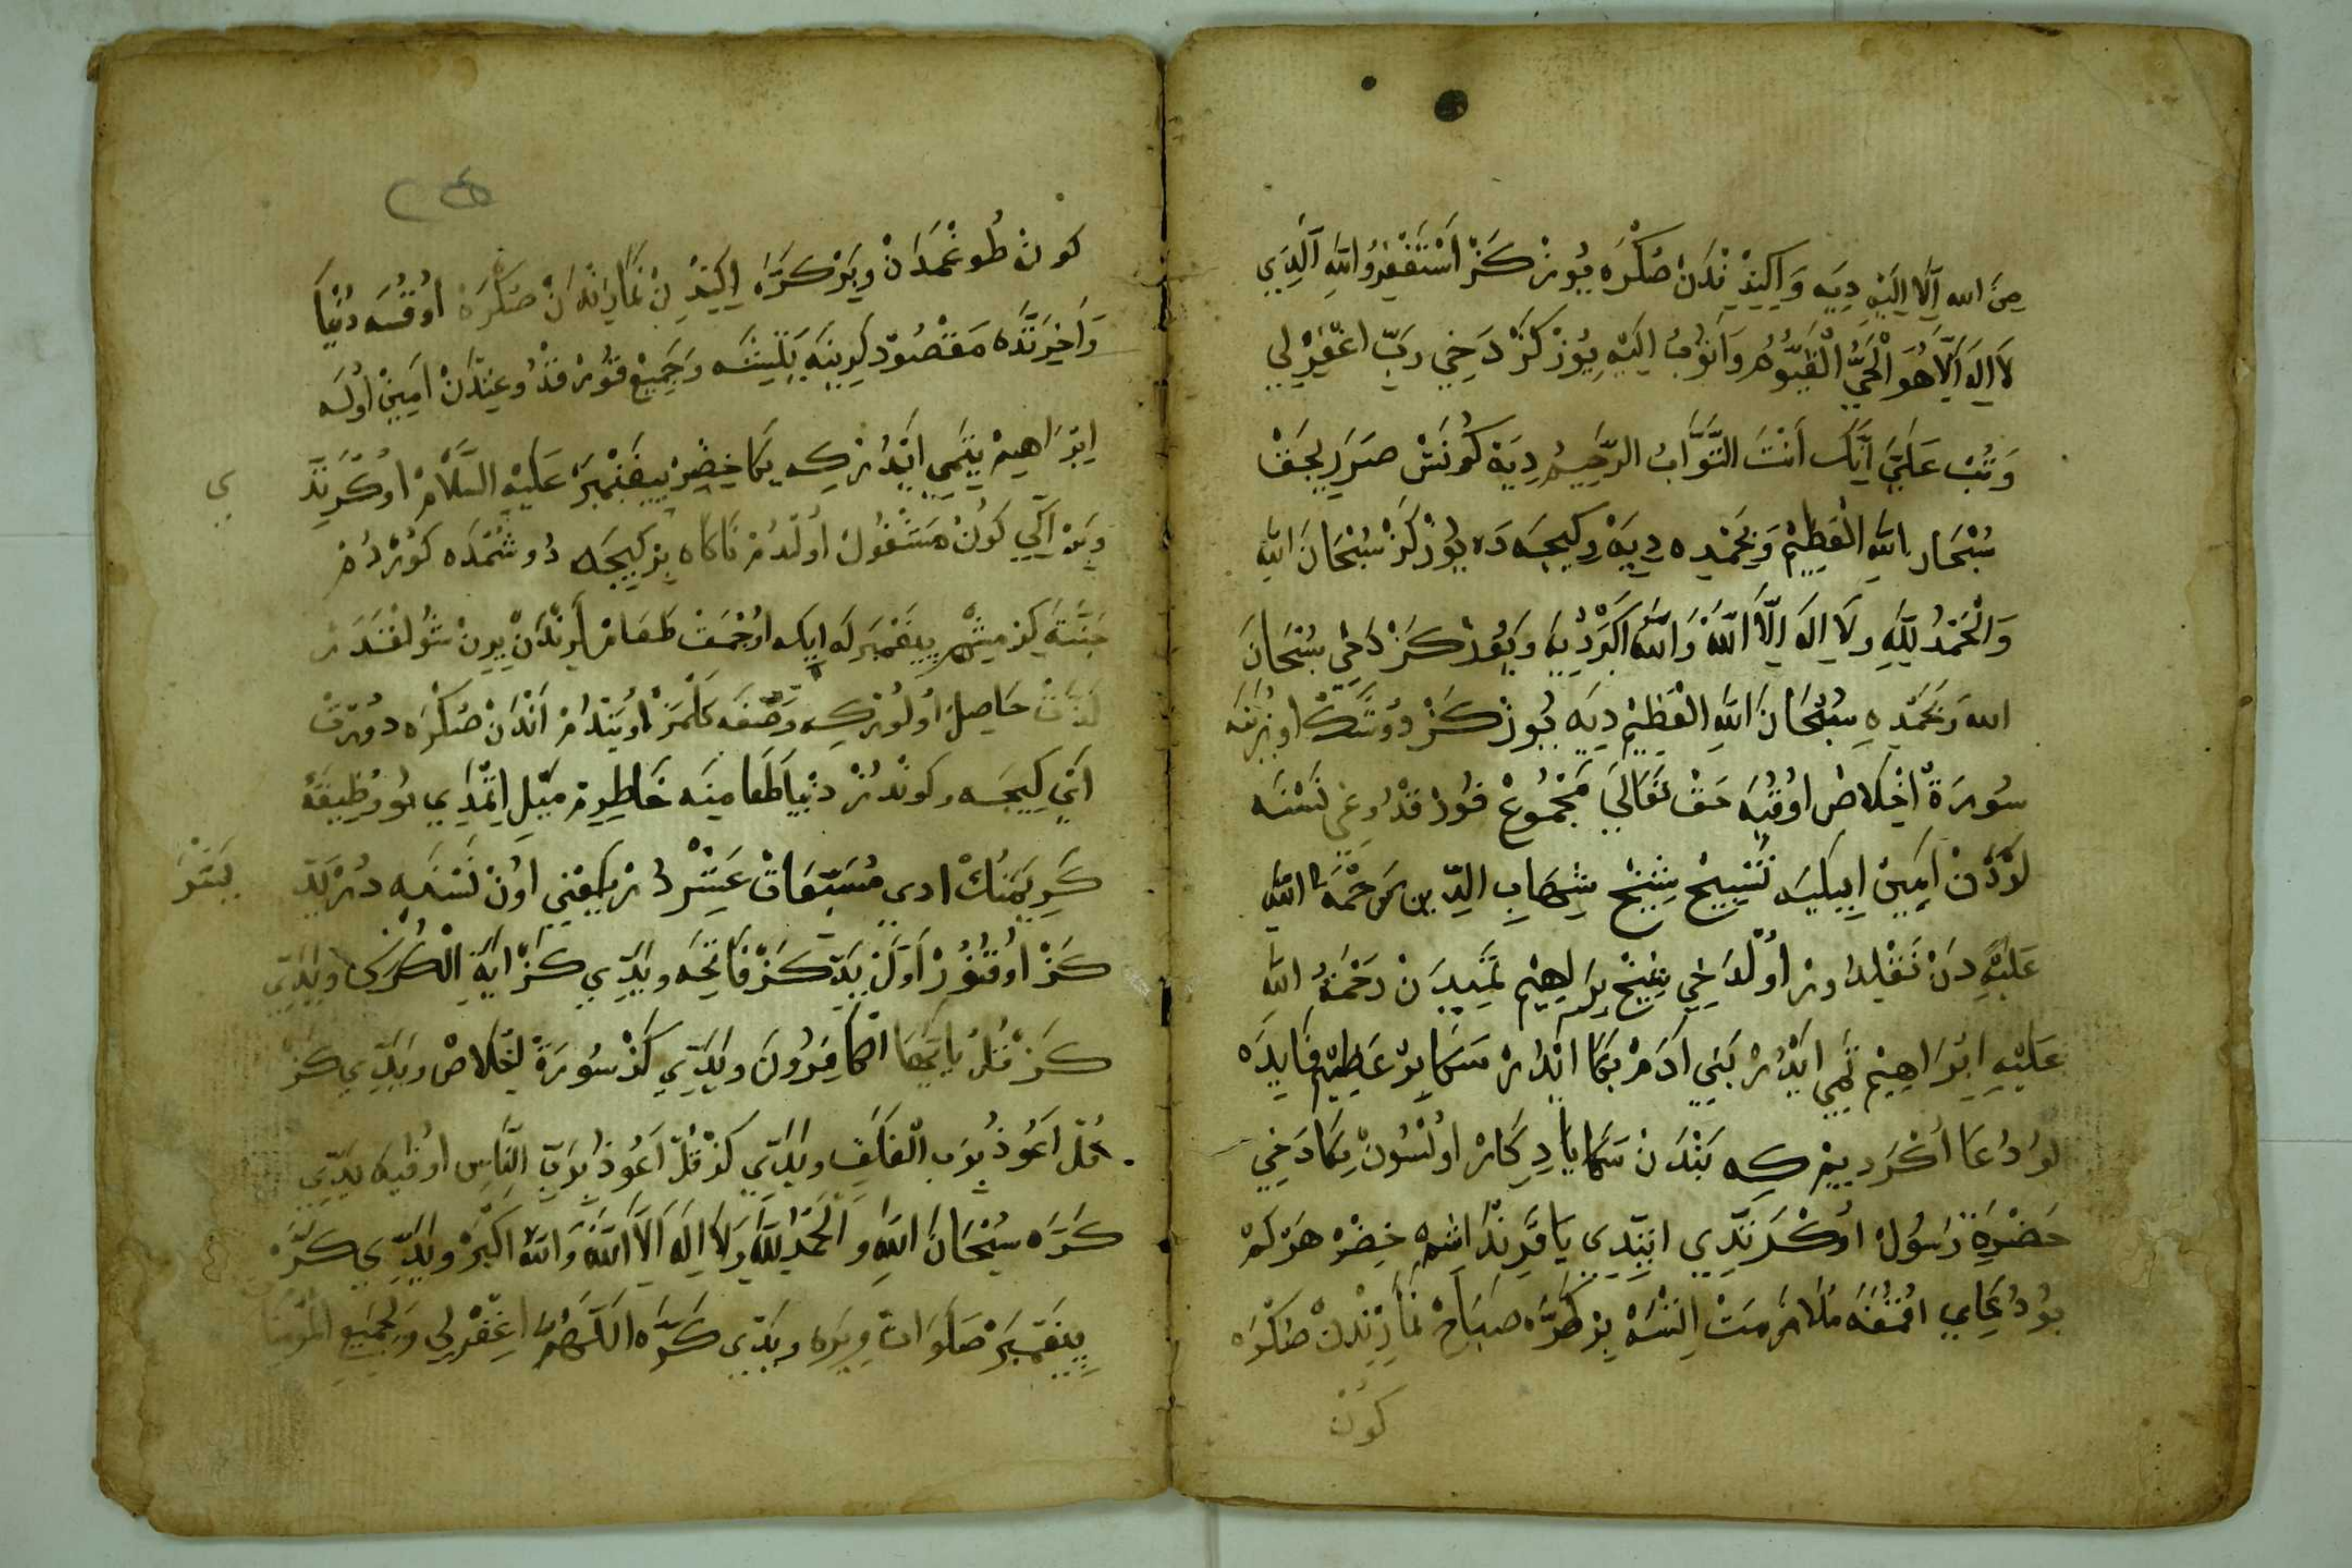 مِنَ الله اِلَّا اِلَيْهِ دِيَه وَ اِكِنْدِيْنْدَنْ صُكْرَه يُوزْ كَزْ اَسْتَغْفِرُ اللهَ الَّذِي
لَا اِلَهَ اِلَّا هُوَ الْحَيُّ الْقَيُّومُ وَاَتُوبُ اِلَيْهِ يُوزْ كَزْ دَخِي رَبِّ اغْفِرْ لِي
وَتُبْ عَلَيَّ اِنَّكَ اَنْتَ التَّوَّابُ الرَّحِيمُ دِيَه كُونَشْ صَرَرِيجَقْ
سُبْحَانَ اللهِ الْعَظِيمْ وَبِحَمْدِه دِيَه وَكِيجَه دَه يُوزْ كَزْ سُبْحَانَ اللهِ
وَالْحَمْدُ لِلَّهِ وَلَا اِلَهَ اِلَّا اللهُ وَاللهُ اَكْبَرْ دِيَه وَيُوزْ كَزْ دَخِي سُبْحَانَ
الله وَبِحَمْدِهِ سُبْحَانَ اللهِ الْعَظِيمْ دِيَه يُوزْ كَزْ دُوشَكْ اُوزَرِنَه
سُورَةْ اِخْلَاصْ اُوقُيَه حَقْ تَعَالَى مَجْمُوعْ قُورْقُدُوغِي نَسْنَه
لَرْدَنْ اَمِينْ اَيْلَيَه تَسْبِيحْ شَيْخْ شِهَابِ الدِّين رَحْمَةُ اللهِ
عَلَيْهِ دَنْ نَقْلِدُورْ اُولْدَخِي شَيْخْ اِبْرَاهِيمْ تَمِيمِيدَنْ رَحْمَةُ اللهِ
عَلَيْهِ اِبْرَاهِيمْ تَمِيمِي اَيْدُرْ بَنِي اَدَمْ بَكَا اَيْدُرْ سَكَا بِرْ عَظِيمْ فَايِدَه
لُو دُعَا اُكْرَدَيِيمْ كِه بَنْدَنْ سَكَا يَادِكَارْ اُولْسُونْ بَكَا دَخِي
حَضْرَةِ رَسُولْ اُوكْرَتْدِي اَيْتْدِي يَا قَرِنْدَاشِمْ خِضِرْ هَرْ كِمْ
بُو دُعَايِي اُقُمَغَه مُلَازَمَتْ اِتْسَه بِرْ كَرَّه صَبَاحْ نَمَازِنْدَنْ صُكْرَه
كُونْ
كُونْ طُوغْمَدَانْ وَبِرْ كَرَّه اِكِنْدِنْ نَمَازِنْدَانْ صُكْرَه اُوقُسَه دُنْيَا
وَاَخِرَتْدَه مَقْصُودْلَرِينَه يَتِيشَه وَجَمِيعْ قُورْقُدُوغِنْدَنْ اَمِينْ اُولَه
اِبْرَاهِيمْ تَمِيمِي اَيْدُرْ كِه بَكَا خِضِرْ پَيْغَمْبَرْ عَلَيْهِ السَّلَامْ اُوكْرَتْدِ
ي
وَبِرْ اِكِي كُونْ مَشْغُولْ اُولْدُمْ نَاكَاه بِرْ كِيجَه دُوشُمْدَه كُورْدُمْ
جَنَّتَه كِرْمِيشَمْ پَيْغَمْبَرْلَه اِيكَه اُوجْمَقْ طَعَامْلَرِنْدَنْ يِرِنْ شُولْقَدَرْ
لَذَّتْ حَاصِلْ اُولُورْكِه وَصْفَه كَلْمَزْ اُويَنْدُمْ اَنْدَنْ صُكْرَه دُورْتْ
اَيْ كِيجَه وَكُونْدُزْ دُنْيَا طَعَامِنَه خَاطِرِمْ مَيْلْ اِتْمَدِي بُو وَظِيفَةْ
كَرِيمَنُكْ اَدِي مُسَبَّعَاتْ عَشْرْدُرْ يَعْنِي اُونْ نَسْنَه دُرْ يَدِّ
يَشَرْ
كَزْ اُوقُنُورْ اَوَّلْ يَدِّي كَزْ فَاتِحَه وَيَدِّي كَزْ اَيَةَ الْكُرْسِي وَيَدِّي
كَزْ قُلْ يَا اَيُّهَا الْكَافِرُونَ وَيَدِّي كَزْ سُورَةْ اِخْلَاصْ وَيَدِّي كَزْ
قُلْ اَعُوذُ بِرَبِّ الْفَلَقِ وَيَدِّي كَزْ قُلْ اَعُوذُ بِرَبِّ النَّاسِ اُوقِيَه يَدِّي
كَرَّه سُبْحَانَ اللهِ وَالْحَمْدُ لِلَّهِ وَلَا اِلَهَ اِلَّا اللهُ وَاللهُ اَكْبَرْ وَيَدِّي كَرَّه
پَيْغَمْبَرَه صَلَوَاتْ وِيرَه وَيَدِّي كَرَّه اَللَّهُمَّ اغْفِرْ لِي وَلِجَمِيعِ الْمُؤْمِنِ